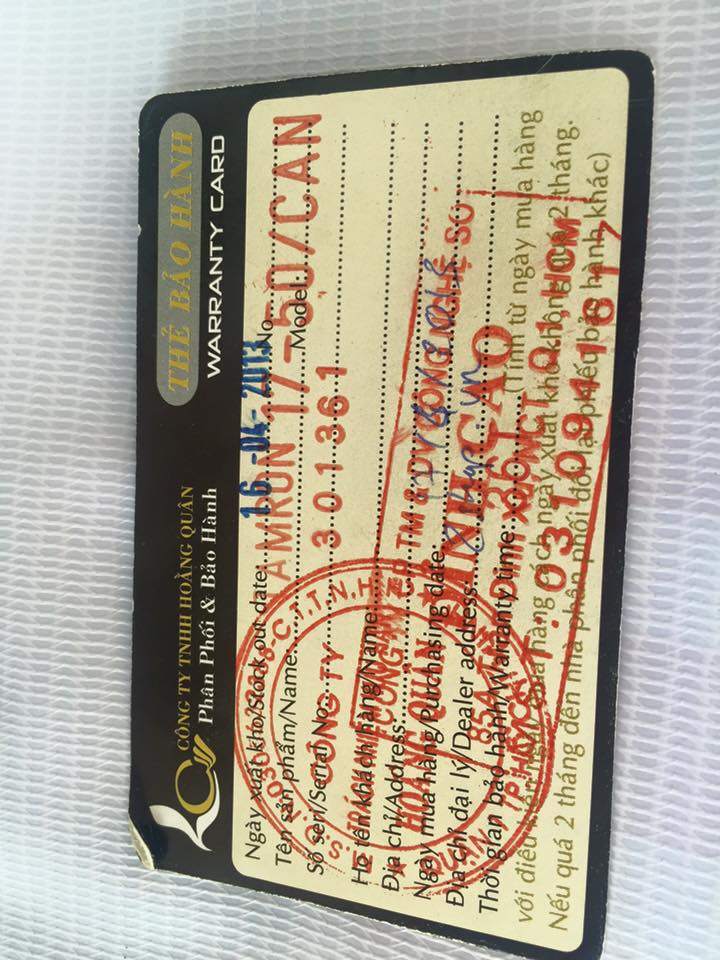 CÔNG TY TNHH HOÀNG QUÂN
Phân Phối & Bảo Hành
THẺ BẢO HÀNH
WARRANTY CARD
Ngày xuất kho/Stock out date: 16-04-2013 No
Tên sản phẩm/Name: TAMRON 17-50/CAN Model:
Số seri/Serial No: 301361
Họ tên khách hàng/Name:
Địa chỉ/Address:
Ngày mua hàng/Purchasing date
Địa chỉ đại lý/Dealer address:
Thời gian bảo hành/Warranty time: (Tính từ ngày mua hàng
với điều kiện ngày mua hàng cách ngày xuất kho không quá 2 tháng.
Nếu quá 2 tháng đến nhà phân phối đổi lại phiếu bảo hành khác)
CÔNG TY
HOÀNG QUÂN
TM & DV CÔNG NGHỆ SỐ
ĐỈNH CAO
Q1, HCM